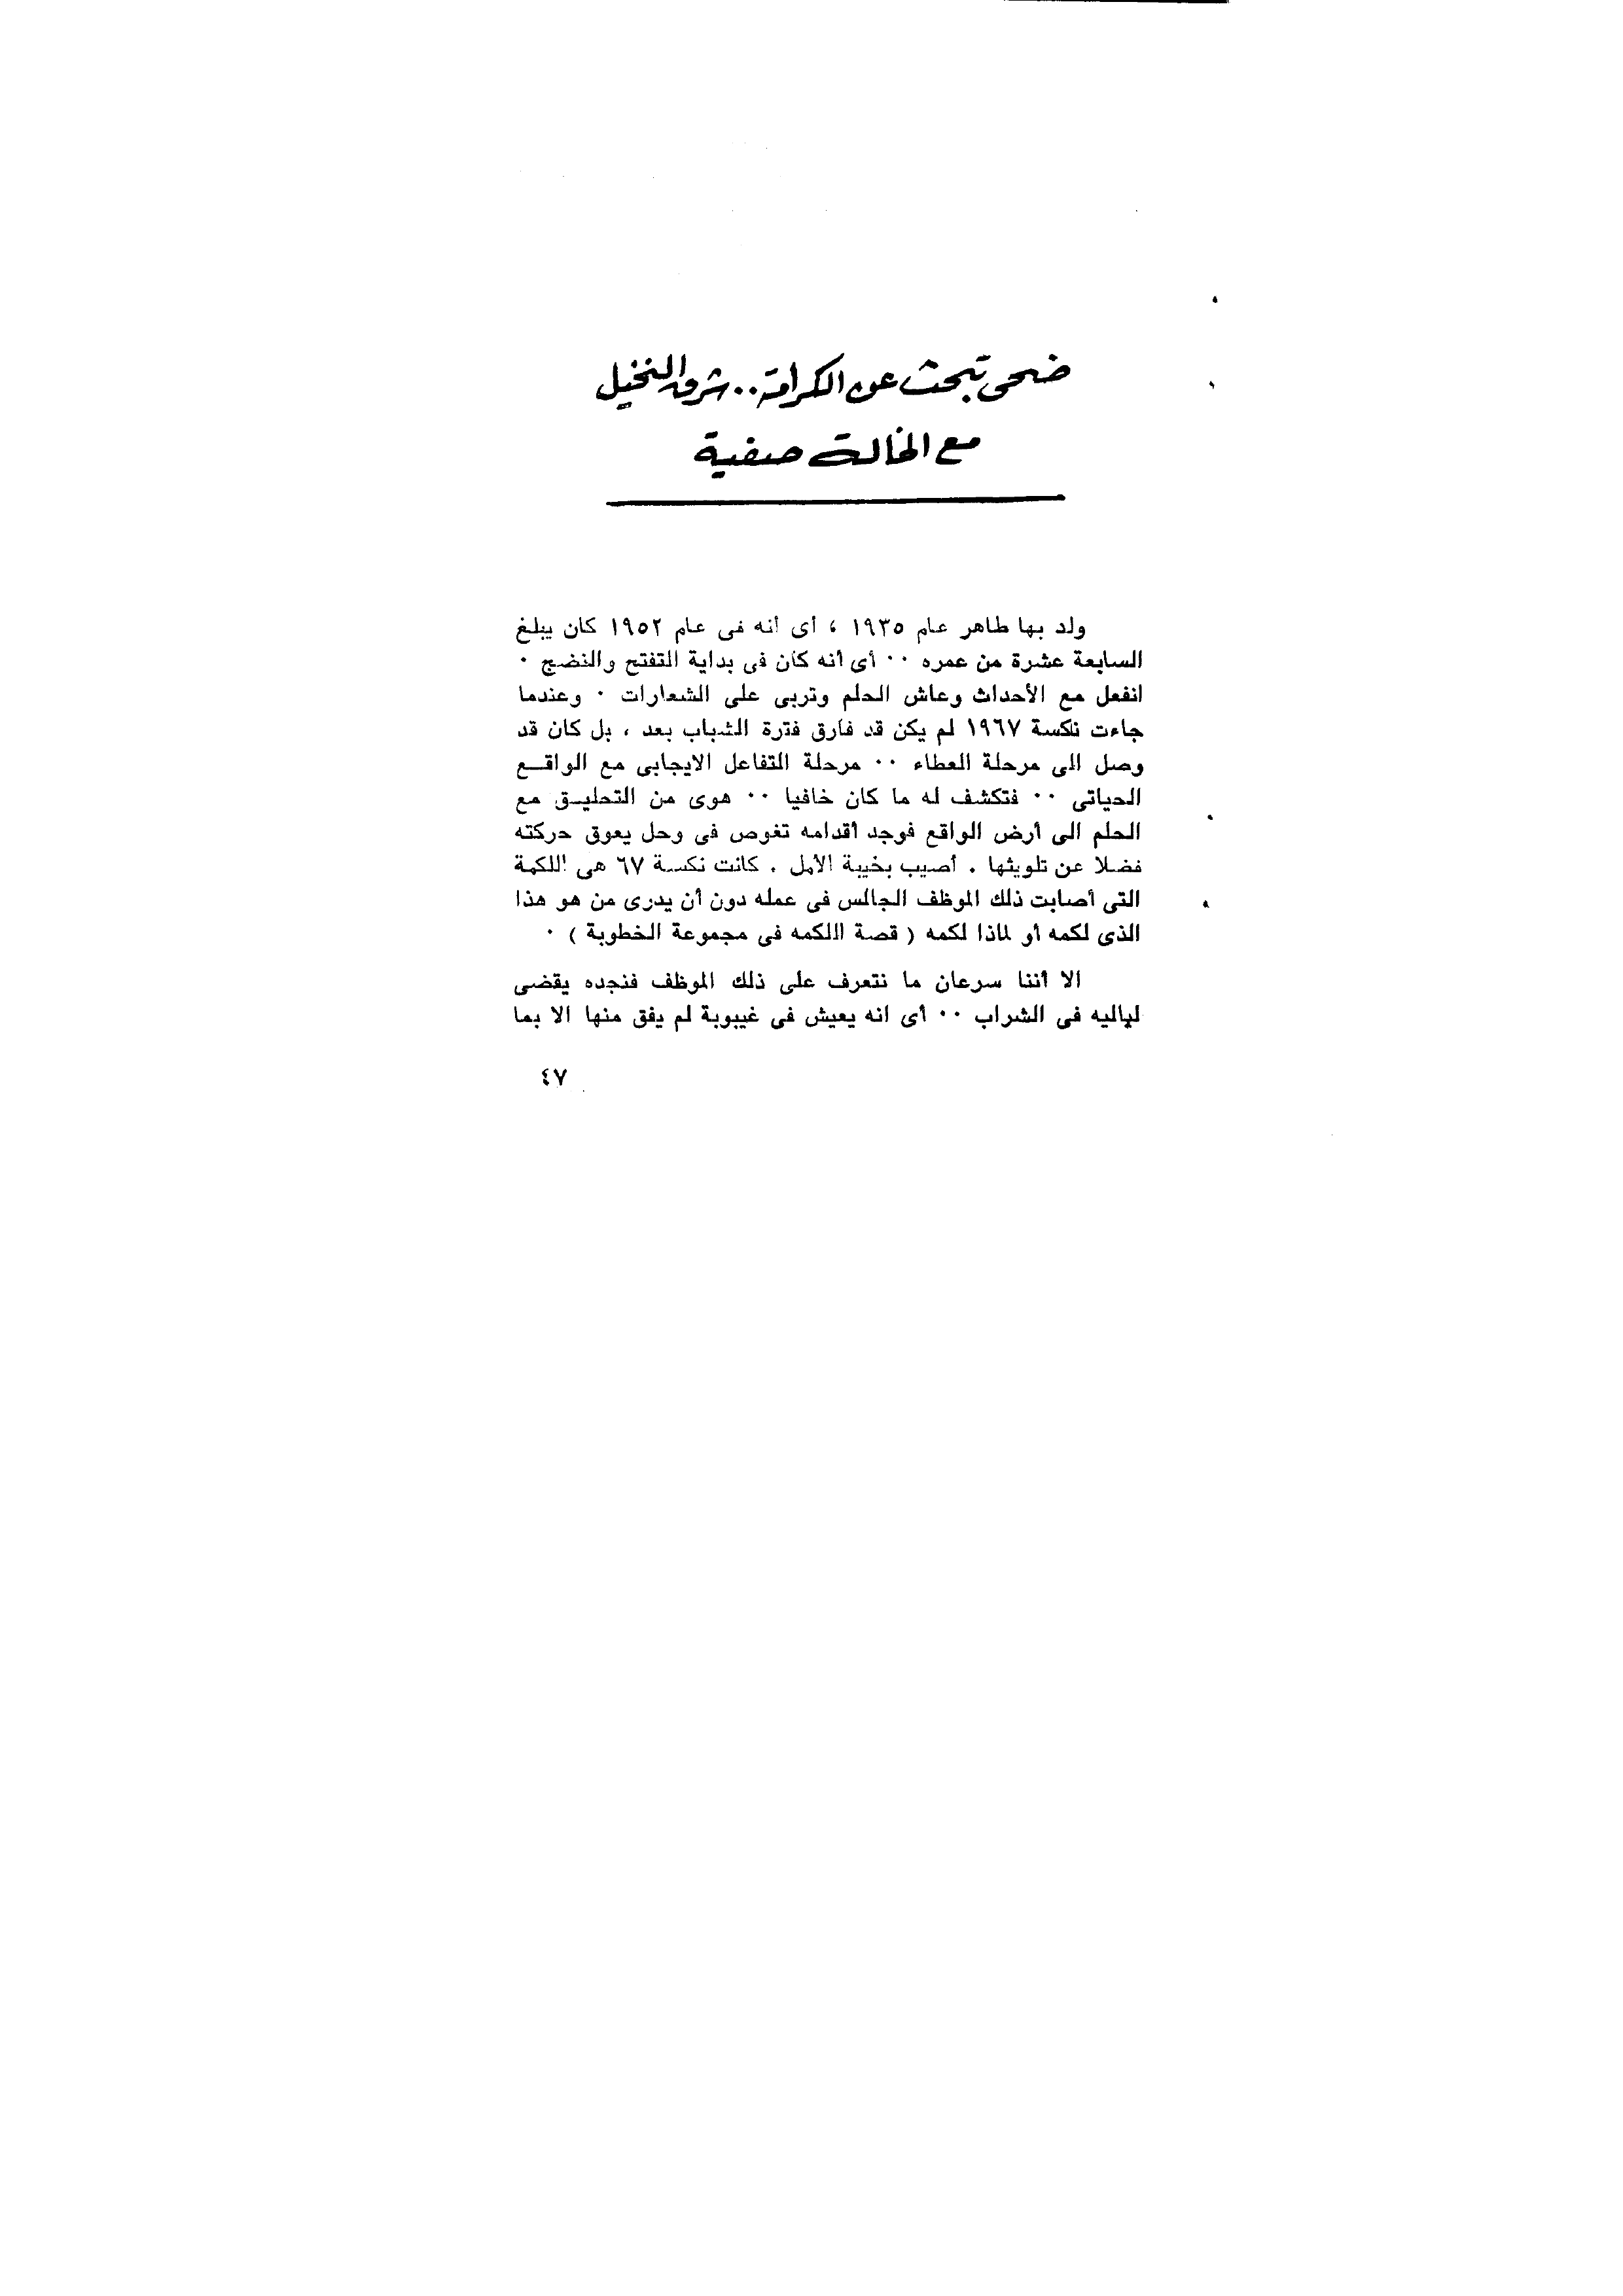 ضحى تبحث عن الكرامة .. شرق النخيل
مع الخالة صفية
ولد بها طاهر عام ١٩٣٥ ، أى أنه فى عام ١٩٥٢ كان يبلغ
السابعة عشرة من عمره ٠٠ أى أنه كان فى بداية التفتح والنضج ٠
انفعل مع الأحداث وعاش الحلم وتربى على الشعارات ٠ وعندما
جاءت نكسة ١٩٦٧ لم يكن قد فارق فترة الشباب بعد ، بل كان قد
وصل الى مرحلة العطاء ٠٠ مرحلة التفاعل الايجابى مع الواقـــع
الحياتى ٠٠ فتكشف له ما كان خافيا ٠٠ هوى من التحليـق مع
الحلم الى أرض الواقع فوجد أقدامه تغوص فى وحل يعوق حركته
فضلا عن تلويثها . أصيب بخيبة الأمل . كانت نكسة ٦٧ هى اللكمة
التى أصابت ذلك الموظف الجالس فى عمله دون أن يدرى من هو هذا
الذى لكمه أو لماذا لكمه ( قصة اللكمه فى مجموعة الخطوبة ) ٠
الا أننا سرعان ما نتعرف على ذلك الموظف فنجده يقضى
لياليه فى الشراب ٠٠ أى انه يعيش فى غيبوبة لم يفق منها الا بما
٤٧